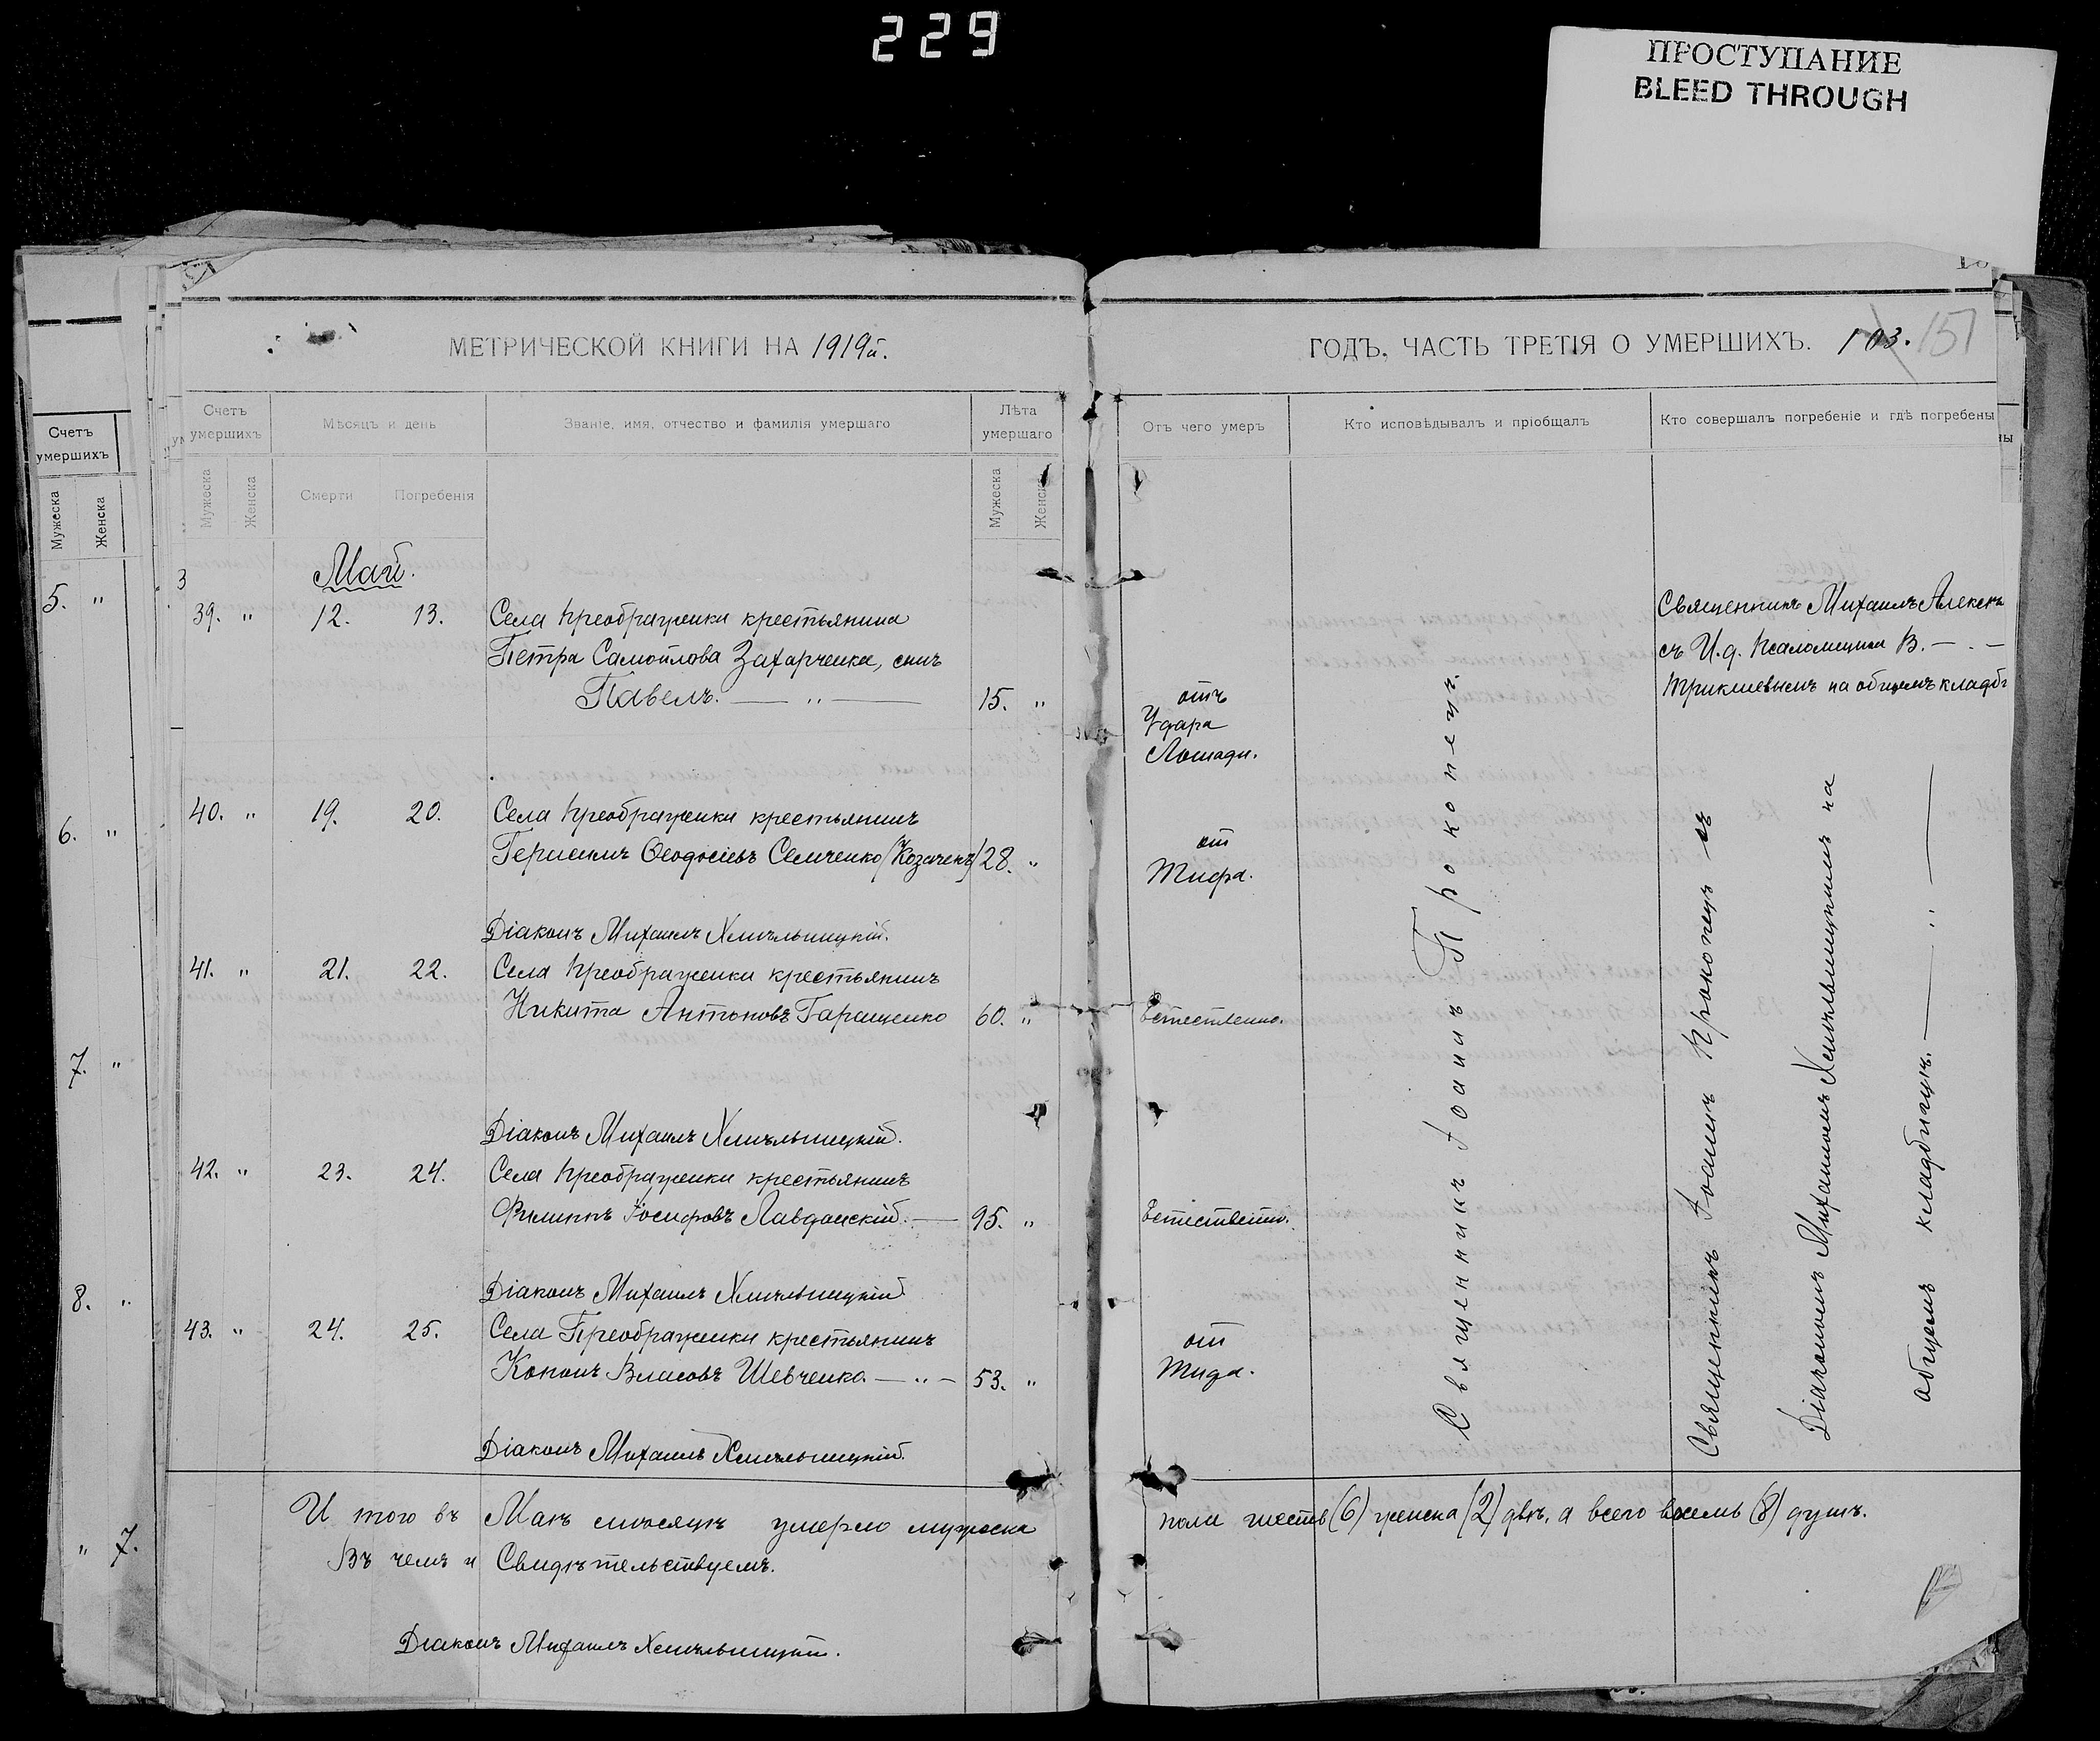 229
ПРОСТУПАНИЕ
BLEED THROUGH
МЕТРИЧЕСКОЙ КНИГИ НА 1919й.
Счетъ умершихъ
Мѣсяцъ и день
Званіе, имя, отчество и фамилія умершаго
Лѣта умершаго
Мужеска Женска
Смерти Погребенія
Мужеска Женска
Май.
39. " 12. 13. Села Преображенки крестьянина
Петра Самойлова Захарченка, сынъ
Павелъ. — " — 15. "
40. " 19. 20. Села Преображенки крестьянинъ
Герасимъ Ѳеодосіевъ Семченко (Козаченъ) 28. "
Діаконъ Михаилъ Хмѣльницкій.
41. " 21. 22. Села Преображенки крестьянинъ
Никита Антоновъ Гаращенко 60. "
Діаконъ Михаилъ Хмѣльницкій.
42. " 23. 24. Села Преображенки крестьянинъ
Филиппъ Іосифовъ Лавданскій. — 95. "
Діаконъ Михаилъ Хмѣльницкій
43. " 24. 25. Села Преображенки крестьянинъ
Кононъ Власовъ Шевченко. — " — 53. "
Діаконъ Михаилъ Хмѣльницкій.
И того въ Маѣ мѣсяцѣ умерло мужеска
Въ чемъ и Свидѣтельствуемъ.
Діаконъ Михаилъ Хмѣльницкій.
ГОДЪ, ЧАСТЬ ТРЕТІЯ О УМЕРШИХЪ. 103. 151
Отъ чего умеръ
Кто исповѣдывалъ и пріобщалъ
Кто совершалъ погребеніе и гдѣ погребены
отъ
Удара
Лошади.
от
Тифа.
Естественно.
Естественно.
от
Священникъ Іоаннъ Прокопецъ.
Священникъ Михаилъ
съ И.д. Псаломщика В. — . —
на общемъ кладб
Священникъ Іоаннъ Прокопецъ съ
Діакономъ Михаиломъ Хмѣльницкимъ на
общемъ кладбищѣ. — " —
пола шесть (6) женска (2) двѣ, а всего восемь (8) душъ.
Счетъ умершихъ
Мужеска Женска
5. "
6. "
7. "
8. "
" 7.